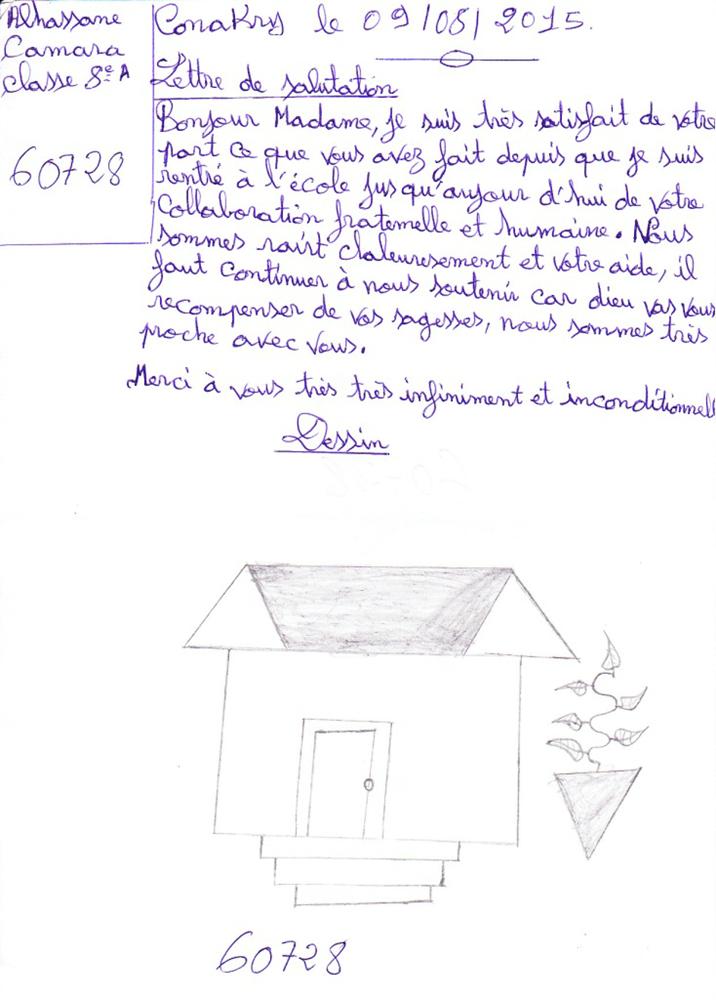 Alhassane
Camara
classe 8e A
60728
Conakry le 09/08/2015.
Lettre de salutation
Bonjour Madame, je suis très satisfait de votre
part ce que vous avez fait depuis que je suis
rentré à l'école jusqu'aujour d'hui de votre
Collaboration fraternelle et humaine. Nous
sommes claleuresement et votre aide, il
faut continuer à nous soutenir car dieu vas vous
recompenser de vos sagesses, nous sommes très
proche avec vous.
Merci à vous très très infiniment et inconditionnell
Dessin
60728